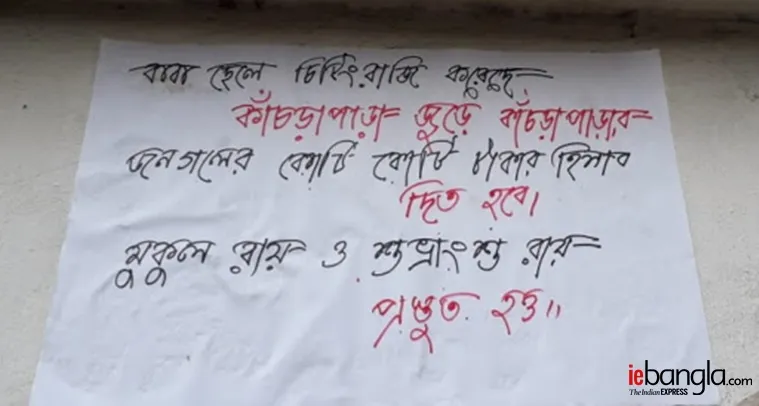 বাবা ছেলে চিটিংবাজি করেছে
কাঁচড়াপাড়া জুড়ে কাঁচড়াপাড়ার
জনগনের কোটি কোটি টাকার হিসাব
দিতে হবে।
মুকুল রায় ও শুভ্রাংশু রায়
প্রস্তুত হও॥
iebangla.com
The Indian EXPRESS